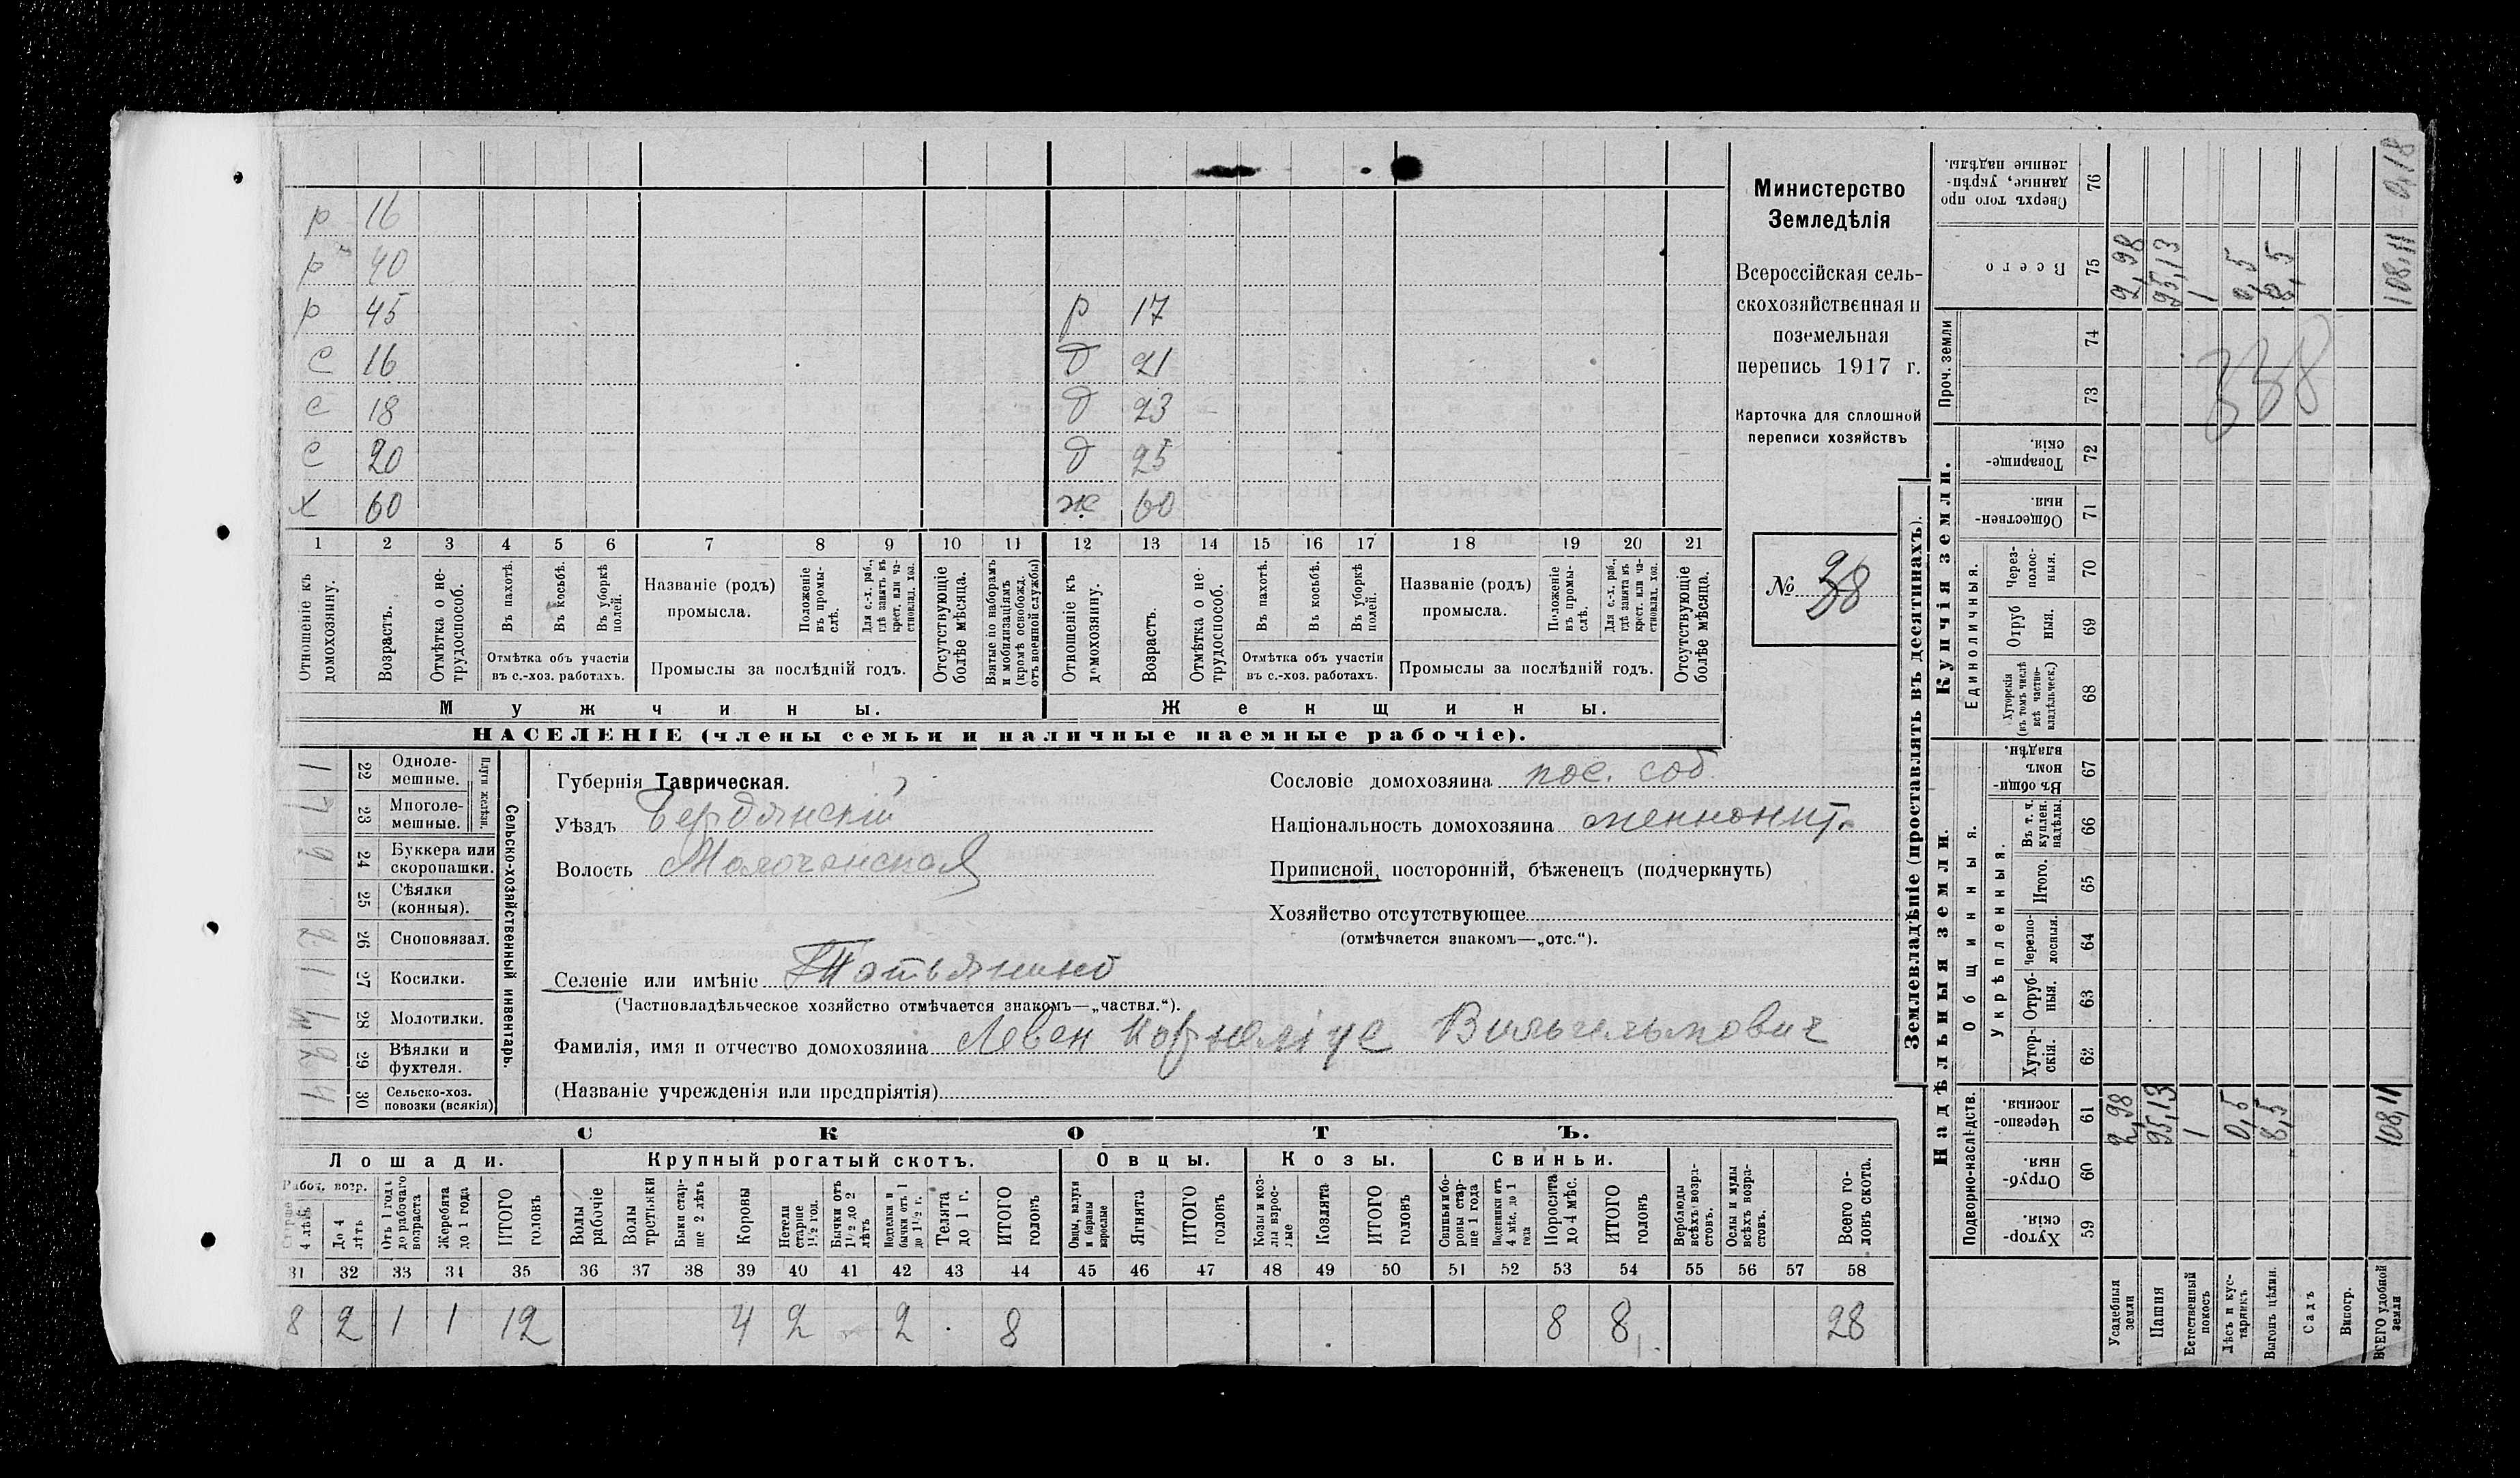 р 16
р 40
р 45 р 17
с 16 д 21
с 18 д 23
с 20 д 25
х 60 ж 60
1 2 3 4 5 6 7 8 9 10 11 12 13 14 15 16 17 18 19 20 21
Отношеніе къ домохозяину.
Возрастъ.
Отмѣтка о не-трудоспособ.
Въ пахотѣ.
Въ косьбѣ.
Въ уборкѣ полей.
Отмѣтка объ участіи въ с.-хоз. работахъ.
Названіе (родъ) промысла.
Положеніе въ промы-слѣ.
Для с.-х. раб., гдѣ занятъ въ крест. или ча-стновлад. хоз.
Промыслы за послѣдній годъ.
Отсутствующіе болѣе мѣсяца.
Взятые по наборамъ и мобилизаціямъ (кромѣ освобожд. отъ военной службы)
Отношеніе къ домохозяину.
Возрастъ.
Отмѣтка о не-трудоспособ.
Въ пахотѣ.
Въ косьбѣ.
Въ уборкѣ полей.
Отмѣтка объ участіи въ с.-хоз. работахъ.
Названіе (родъ) промысла.
Положеніе въ промы-слѣ.
Для с.-х. раб., гдѣ занята въ крест. или ча-стновлад. хоз.
Промыслы за послѣдній годъ.
Отсутствующіе болѣе мѣсяца.
Мужчины. Женщины.
НАСЕЛЕНІЕ (члены семьи и наличные наемные рабочіе).
Министерство
Земледѣлія
Всероссійская сель-
скохозяйственная и
поземельная
перепись 1917 г.
Карточка для сплошной
переписи хозяйствъ
№ 38
Сельско-хозяйственный инвентарь.
Плуги желѣзн.
22 Одноле-мешные. 1
23 Многоле-мешные.
24 Буккера или скоропашки.
25 Сѣялки (конныя).
26 Сноповязал.
27 Косилки. 1
28 Молотилки.
29 Вѣялки и фухтеля.
30 Сельско-хоз. повозки (всякія) 4
Губернія Таврическая.
Уѣздъ Бердянскій
Волость Молочанская
Селеніе или имѣніе Татьянино
(Частновладѣльческое хозяйство отмѣчается знакомъ—„частвл.“).
Фамилія, имя и отчество домохозяина Левен Корнеліус Вильгельмович
(Названіе учрежденія или предпріятія)
Сословіе домохозяина пос. соб.
Національность домохозяина меннонит.
Приписной, посторонній, бѣженецъ (подчеркнуть)
Хозяйство отсутствующее
(отмѣчается знакомъ—„отс.“).
СКОТЪ.
Лошади. Крупный рогатый скотъ. Овцы. Козы. Свиньи.
Работ. возр.
Старше 4 лѣтъ
До 4 лѣтъ
Отъ 1 года до рабочаго возраста
Жеребята до 1 года
ИТОГО головъ
Волы рабочіе
Волы третьяки
Быки стар-ше 2 лѣтъ
Коровы
Нетели старше 1½ год.
Бычки отъ 1½ до 2 лѣтъ
Подтелки и бычки отъ 1 до 1½ г.
Телята до 1 г.
ИТОГО головъ
Овцы, валухи и бараны взрослые
Ягнята
ИТОГО головъ
Козы и коз-лы взрос-лые
Козлята
ИТОГО головъ
Свиньи и бо-ровы стар-ше 1 года
Подсвинки отъ 4 мѣс. до 1 года
Поросята до 4 мѣс.
ИТОГО головъ
Верблюды всѣхъ возра-стовъ.
Ослы и мулы всѣхъ возра-стовъ.
Всего го-ловъ скота.
31 32 33 34 35 36 37 38 39 40 41 42 43 44 45 46 47 48 49 50 51 52 53 54 55 56 57 58
8 2 1 1 12 4 2 2 8 8 8 28
Землевладѣніе (проставлять въ десятинахъ).
Надѣльныя земли.
Купчія земли.
Проч. земли
Подворно-наслѣдств.
Общинныя.
Укрѣпленныя.
Единоличныя.
Сверхъ того про-данные, укрѣп-ленные надѣлы. 76
Всего 75
74
73
Товарище-скія. 72
Обществен-ныя. 71
Через-полос-ныя. 70
Отруб-ныя. 69
Хуторскія (въ томъ числѣ всѣ частно-владѣльческ.) 68
Въ общи-номъ владѣн. 67
Въ т. ч. куплен. надѣлы. 66
Итого. 65
Черезпо-лосныя. 64
Отруб-ныя. 63
Хутор-скія. 62
Черезпо-лосныя. 61
Отруб-ныя. 60
Хутор-скія. 59
338
Усадебныя земли 2,98 2,98
Пашня 95,13 95,13
Естественный покосъ 1 1
Лѣсъ и кус-тарникъ 0,5 0,5
Выгонъ цѣлин. 8,5 8,5
Садъ
Виногр.
ВСЕГО удобной земли 108,11 108,11 0,18